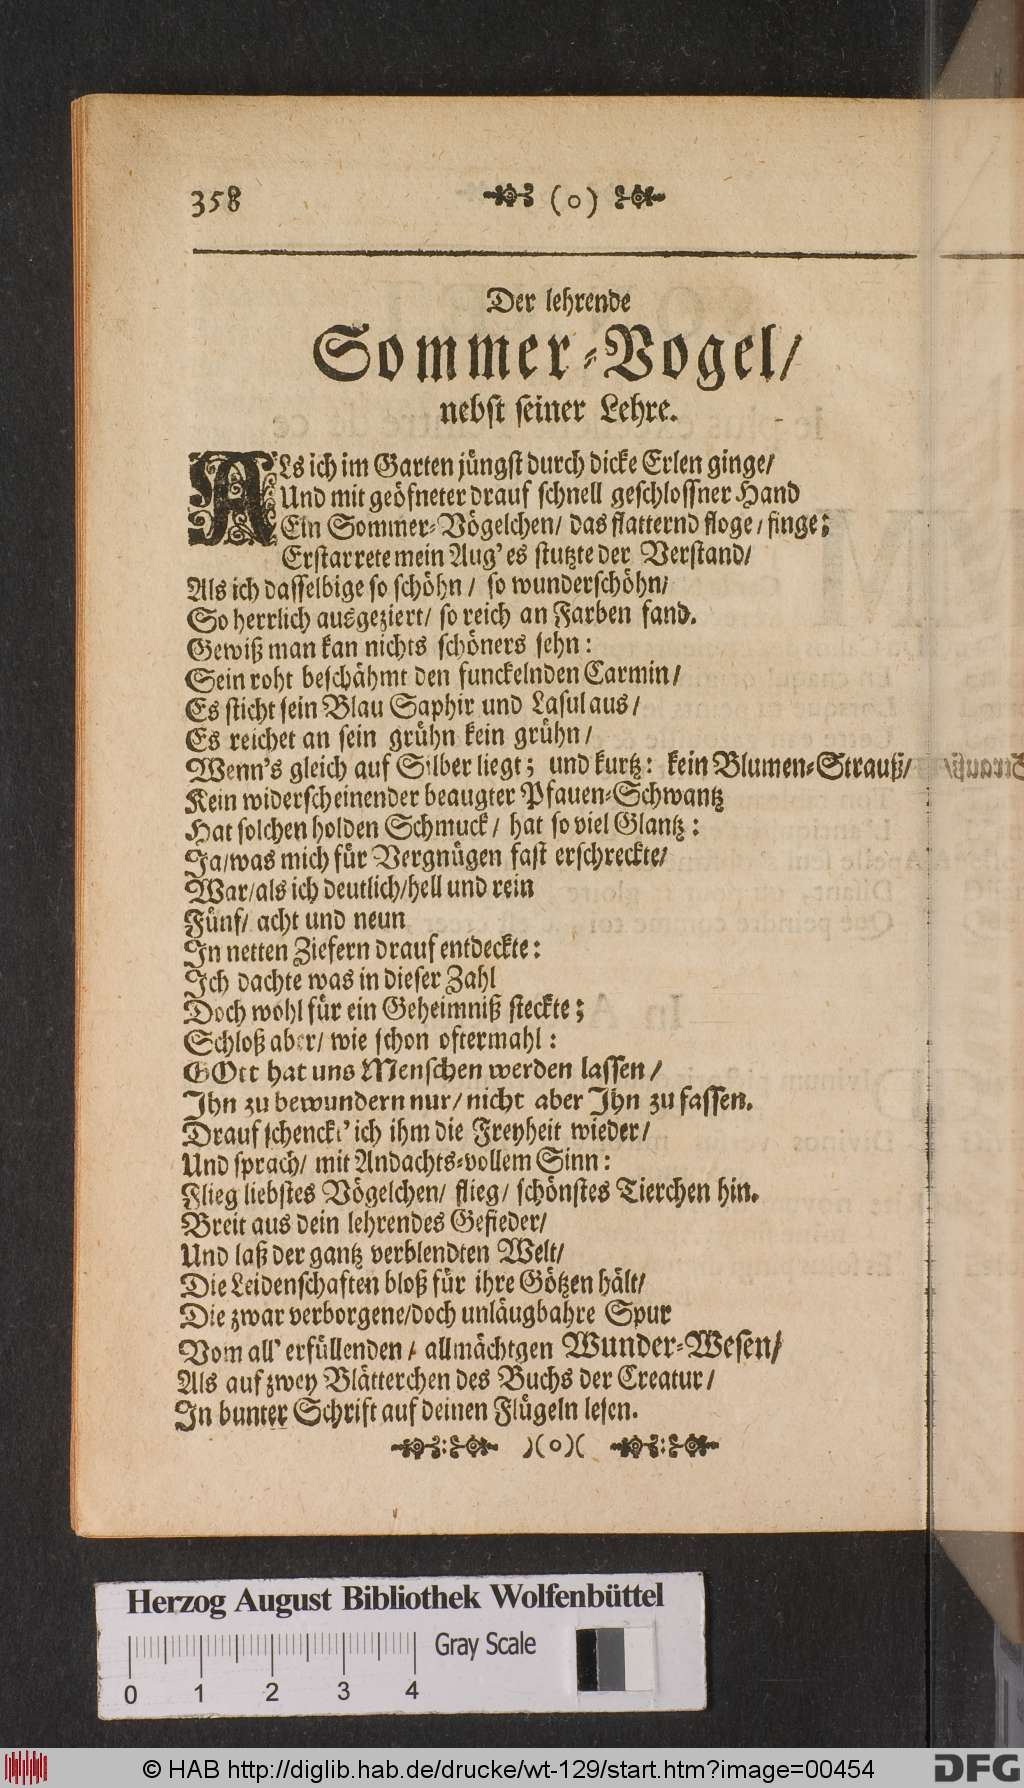 358 (o)
Der lehrende
Sommer-Vogel/
nebst seiner Lehre.
ALs ich im Garten jüngst durch dicke Erlen ginge/
Und mit geöfneter drauf schnell geschlossner Hand
Ein Sommer-Vögelchen/ das flatternd floge/ finge;
Erstarrete mein Aug' es stutzte der Verstand/
Als ich dasselbige so schöhn/ so wunderschöhn/
So herrlich ausgeziert/ so reich an Farben fand.
Gewiß man kan nichts schöners sehn:
Sein roht beschähmt den funckelnden Carmin/
Es sticht sein Blau Saphir und Lasul aus/
Es reichet an sein grühn kein grühn/
Wenn's gleich auf Silber liegt; und kurtz: kein Blumen-Strauß/
Kein widerscheinender beaugter Pfauen-Schwantz
Hat solchen holden Schmuck/ hat so viel Glantz:
Ja/was mich für Vergnügen fast erschreckte/
War/als ich deutlich/hell und rein
Fünf/ acht und neun
In netten Ziefern drauf entdeckte:
Ich dachte was in dieser Zahl
Doch wohl für ein Geheimniß steckte;
Schloß aber/ wie schon oftermahl:
GOtt hat uns Menschen werden lassen/
Ihn zu bewundern nur/ nicht aber Ihn zu fassen.
Drauf schenckt' ich ihm die Freyheit wieder/
Und sprach/ mit Andachts-vollem Sinn:
Flieg liebstes Vögelchen/ flieg/ schönstes Tierchen hin.
Breit aus dein lehrendes Gefieder/
Und laß der gantz verblendten Welt/
Die Leidenschaften bloß für ihre Götzen hält/
Die zwar verborgene/doch unläugbahre Spur
Vom all' erfüllenden/ allmächtgen Wunder-Wesen/
Als auf zwey Blätterchen des Buchs der Creatur/
In bunter Schrift auf deinen Flügeln lesen.
)(o)(
Herzog August Bibliothek Wolfenbüttel
Gray Scale
0 1 2 3 4
© HAB http://diglib.hab.de/drucke/wt-129/start.htm?image=00454
DFG